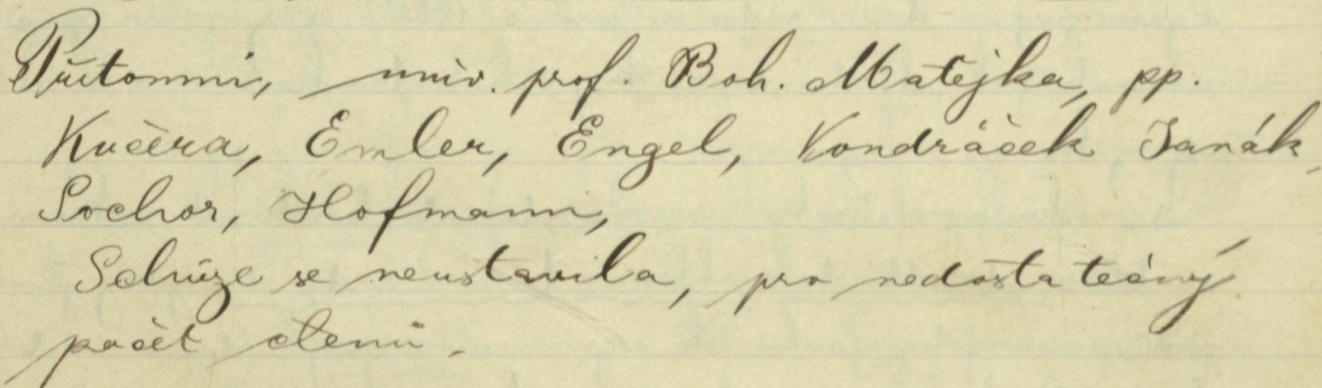 Přítomni, univ. prof. Boh. Matějka, pp.
Kučera, Emler, Engel, Kondráček Janák,
Sochor, Hofmann,
Schůze se neustavila, pro nedostatečný
počet členů.